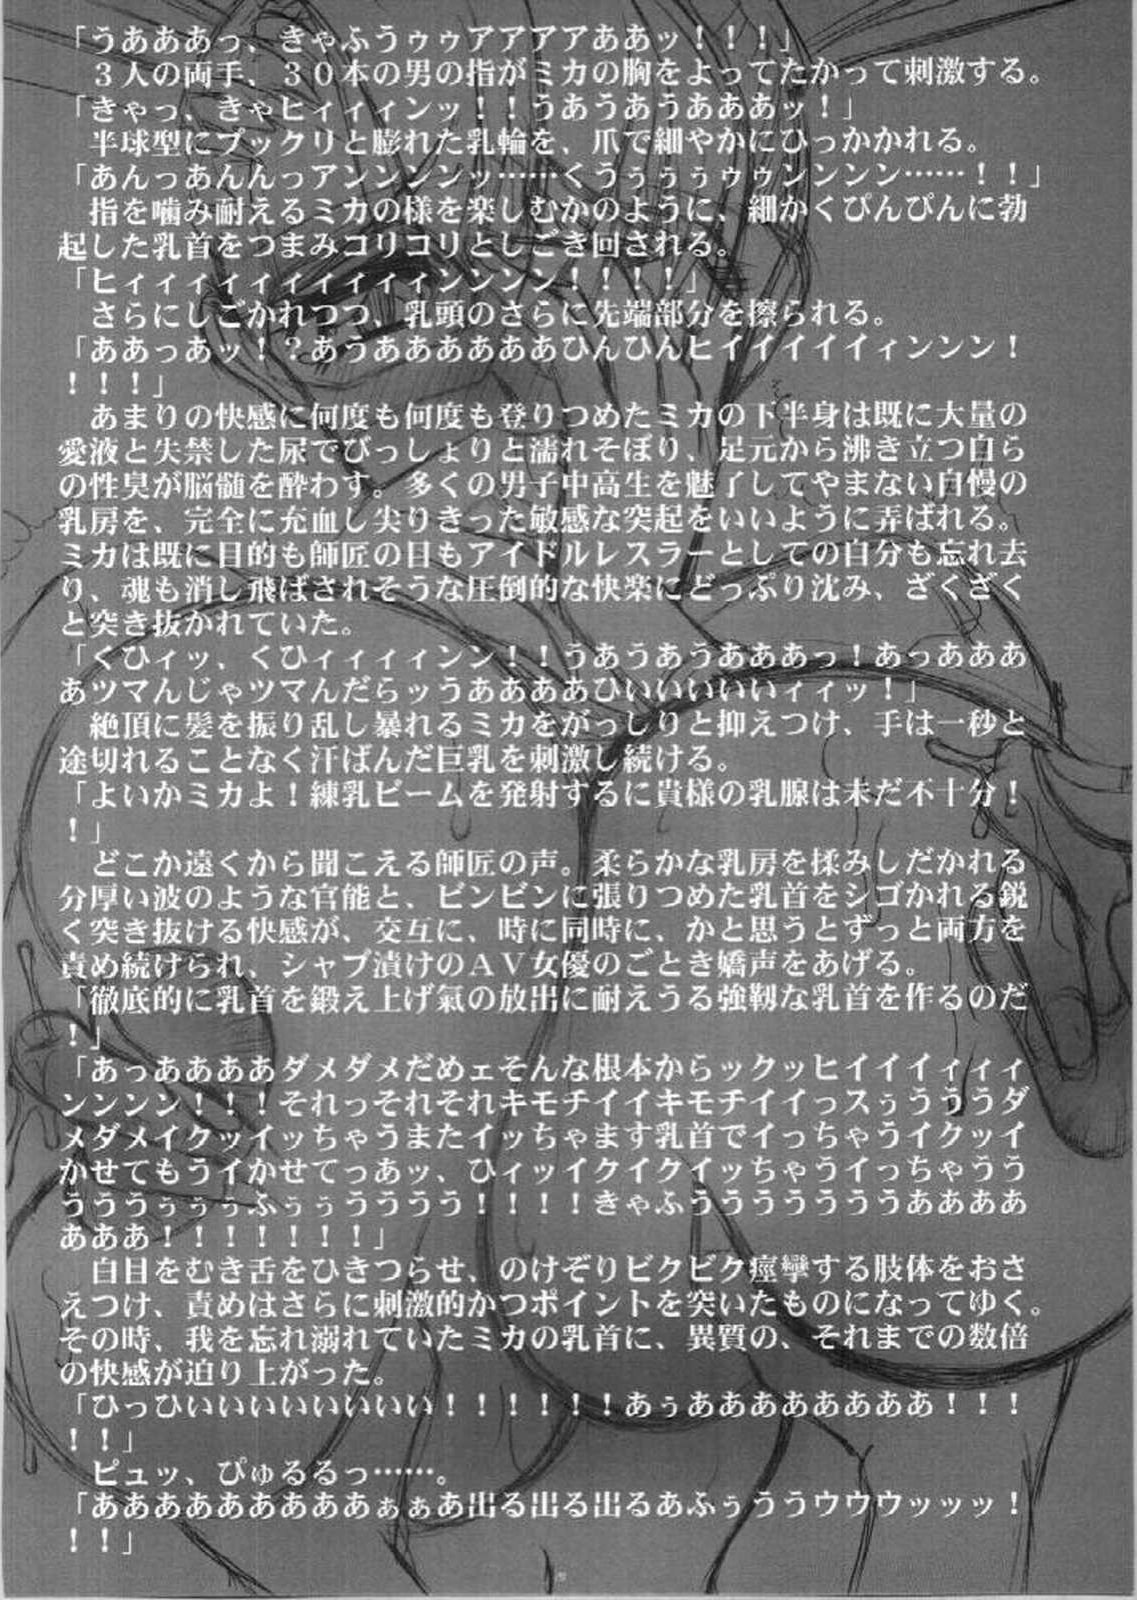 「うあああっ、きゃふうゥゥアアアアああッ！！！」
３人の両手、３０本の男の指がミカの胸をよってたかって刺激する。
「きゃっ、きゃヒィィィンッ！！うあうあうあああッ！」
半球型にプックリと膨れた乳輪を、爪で細やかにひっかかれる。
「あんっあんんっアンンンンッ……くうぅぅぅゥゥンンンン……！！」
指を噛み耐えるミカの様を楽しむかのように、細かくぴんぴんに勃
起した乳首をつまみコリコリとしごき回される。
「ヒィィィィィィィィィィィンンンン！！！！」
さらにしごかれつつ、乳頭のさらに先端部分を擦られる。
「ああっあッ！？あうああああああひんひんヒイイイイイィンンン！
！！！」
あまりの快感に何度も何度も登りつめたミカの下半身は既に大量の
愛液と失禁した尿でびっしょりと濡れそぼり、足元から沸き立つ自ら
の性臭が脳髄を酔わす。多くの男子中高生を魅了してやまない自慢の
乳房を、完全に充血し尖りきった敏感な突起をいいように弄ばれる。
ミカは既に目的も師匠の目もアイドルレスラーとしての自分も忘れ去
り、魂も消し飛ばされそうな圧倒的な快楽にどっぷり沈み、ざくざく
と突き抜かれていた。
「くひィッ、くひィィィィンン！！うあうあうあああっ！あっあああ
あツマんじゃツマんだらッうああああひいいいいいィィッ！」
絶頂に髪を振り乱し暴れるミカをがっしりと抑えつけ、手は一秒と
途切れることなく汗ばんだ巨乳を刺激し続ける。
「よいかミカよ！練乳ビームを発射するに貴様の乳腺は未だ不十分！
！」
どこか遠くから聞こえる師匠の声。柔らかな乳房を揉みしだかれる
分厚い波のような官能と、ビンビンに張りつめた乳首をシゴかれる鋭
く突き抜ける快感が、交互に、時に同時に、かと思うとずっと両方を
責め続けられ、シャブ漬けのＡＶ女優のごとき嬌声をあげる。
「徹底的に乳首を鍛え上げ氣の放出に耐えうる強靭な乳首を作るのだ
！」
「あっああああダメダメだめェそんな根本からックッヒイイイィィィ
ンンンン！！！それっそれそれキモチイイキモチイイっスぅうううダ
メダメイクッイッちゃうまたイッちゃます乳首でイっちゃうイクッイ
かせてもうイかせてっあッ、ひィッイクイクイッちゃうイっちゃうう
うううぅぅぅふぅぅうううう！！！！きゃふうううううううああああ
あああ！！！！！！！」
白目をむき舌をひきつらせ、のけぞりビクビク痙攣する肢体をおさ
えつけ、責めはさらに刺激的かつポイントを突いたものになってゆく。
その時、我を忘れ溺れていたミカの乳首に、異質の、それまでの数倍
の快感が迫り上がった。
「ひっひいいいいいいいい！！！！！！あぅああああああああ！！！
！！」
ピュッ、ぴゅるるっ……。
「あああああああああぁぁあ出る出る出るあふぅううウウウッッッ！
！！」